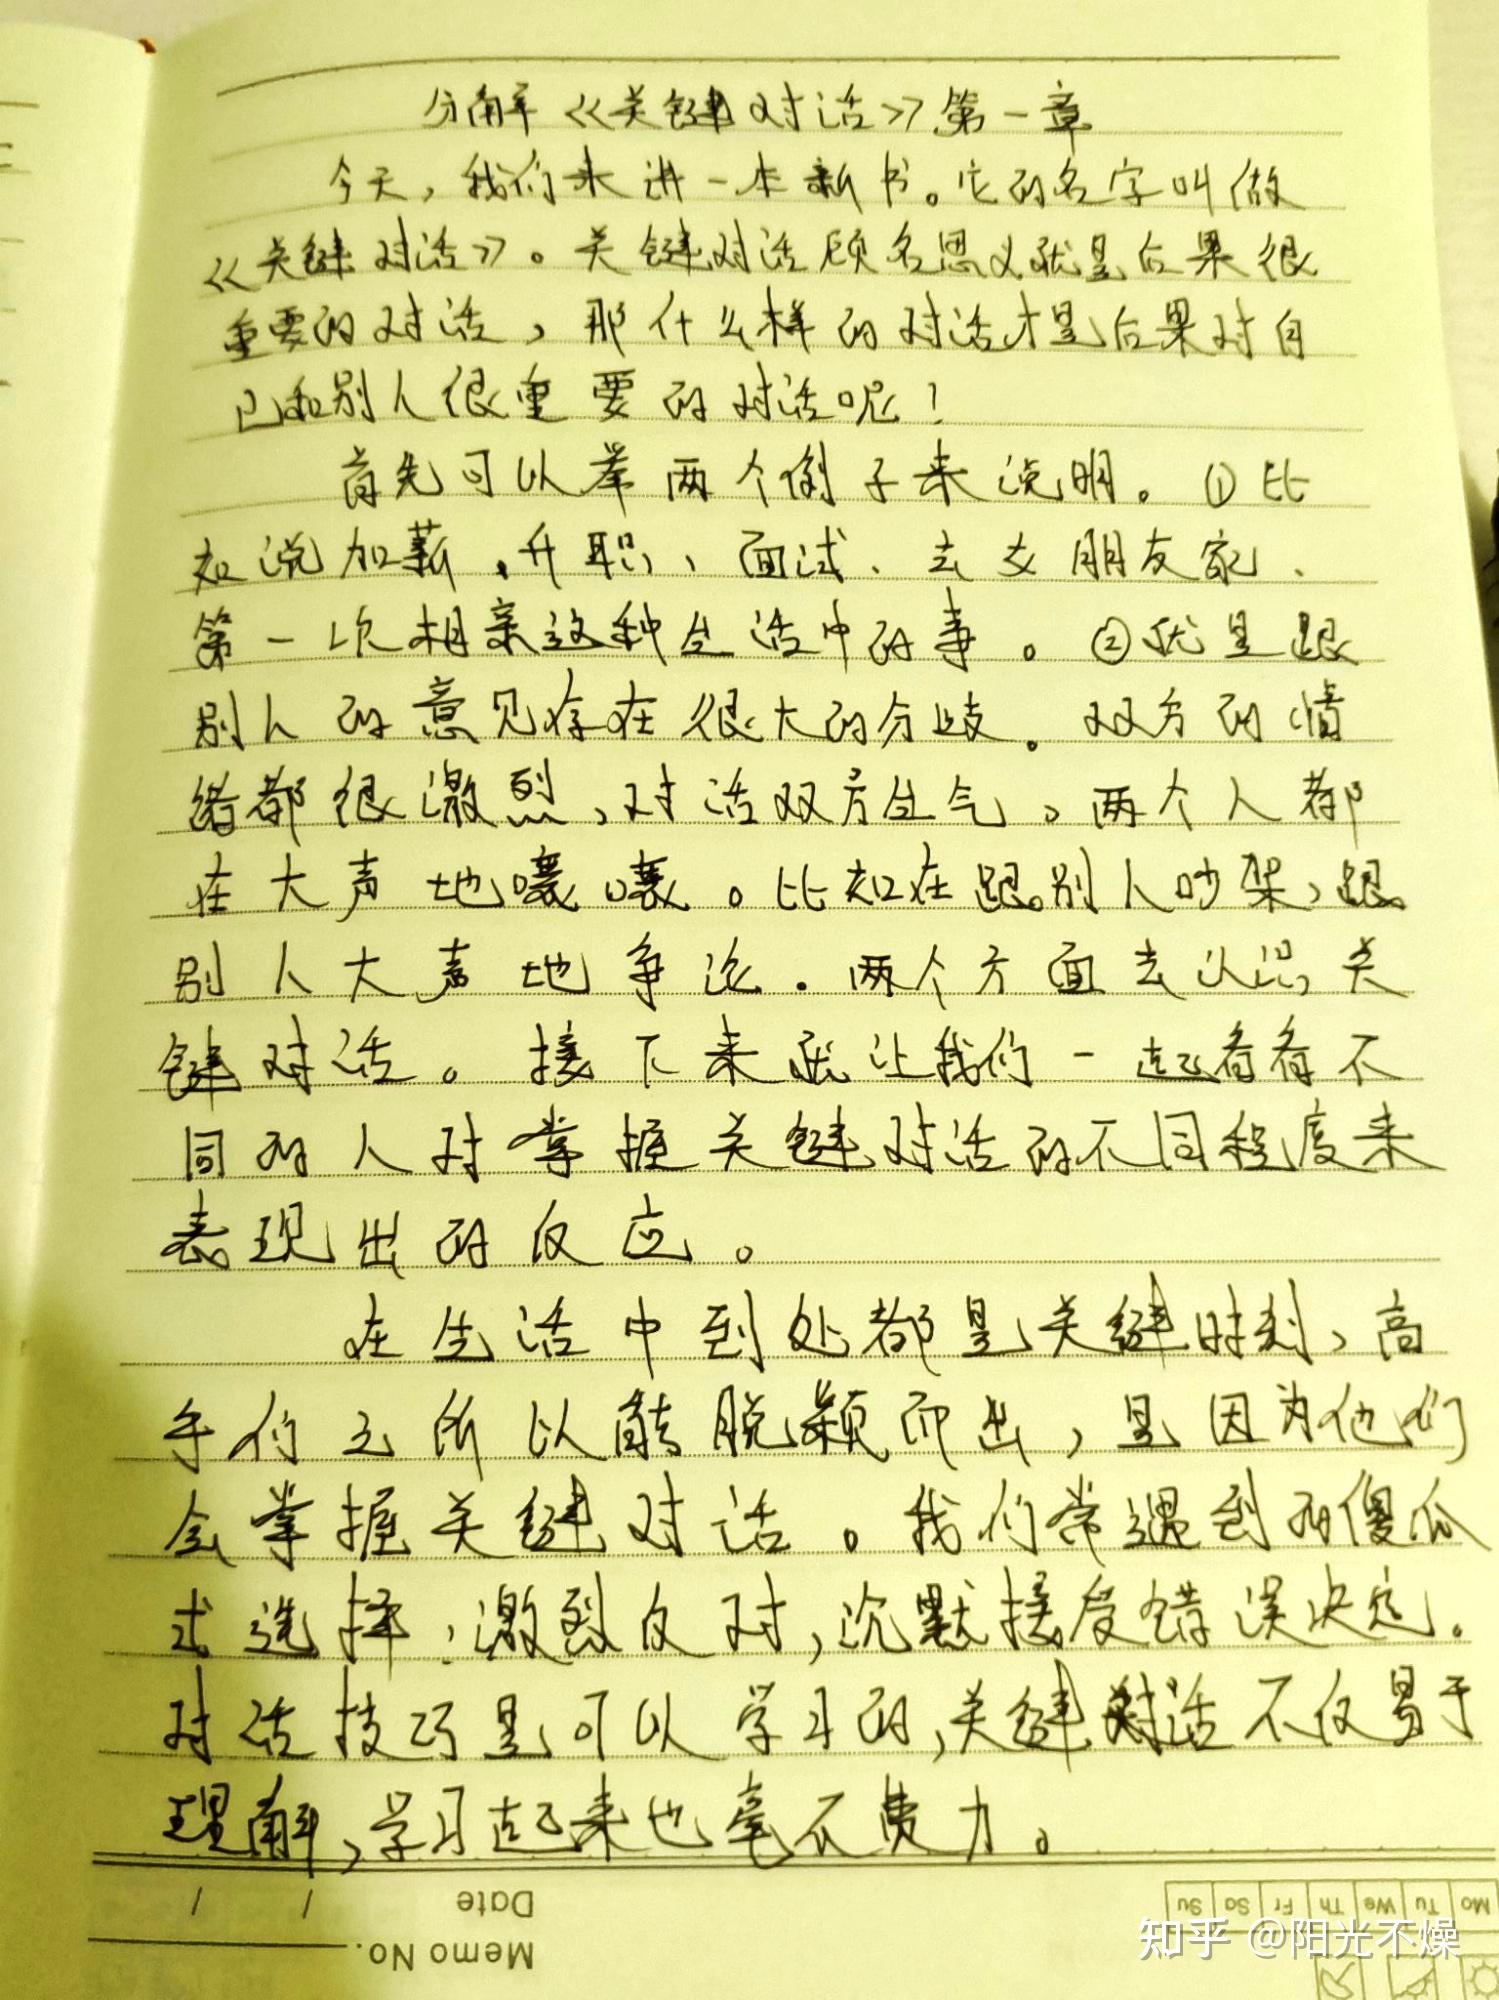 分解《关键对话》第一章
今天，我们来讲一本新书。它的名字叫做
《关键对话》。关键对话顾名思义就是后果很
重要的对话，那什么样的对话才是后果对自
已和别人很重要的对话呢！
首先可以举两个例子来说明。①比
如说加薪、升职、面试、去女朋友家、
第一次相亲这种生活中的事。②就是跟
别人的意见存在很大的分歧。双方的情
绪都很激烈，对话双方生气，两个人都
在大声地嚷嚷。比如在跟别人吵架，跟
别人大声地争论。两个方面去认识关
键对话。接下来就让我们一起看看不
同的人对掌握关键对话的不同程度来
表现出的反应。
在生活中到处都是关键时刻，高
手们之所以能脱颖而出，是因为他们
会掌握关键对话。我们常遇到的傻瓜
式选择，激烈反对，沉默接受错误决定。
对话技巧是可以学习的，关键对话不仅易于
理解，学习起来也毫不费力。
Date / /
Memo No.
Mo Tu We Th Fr Sa Su
知乎 @阳光不燥